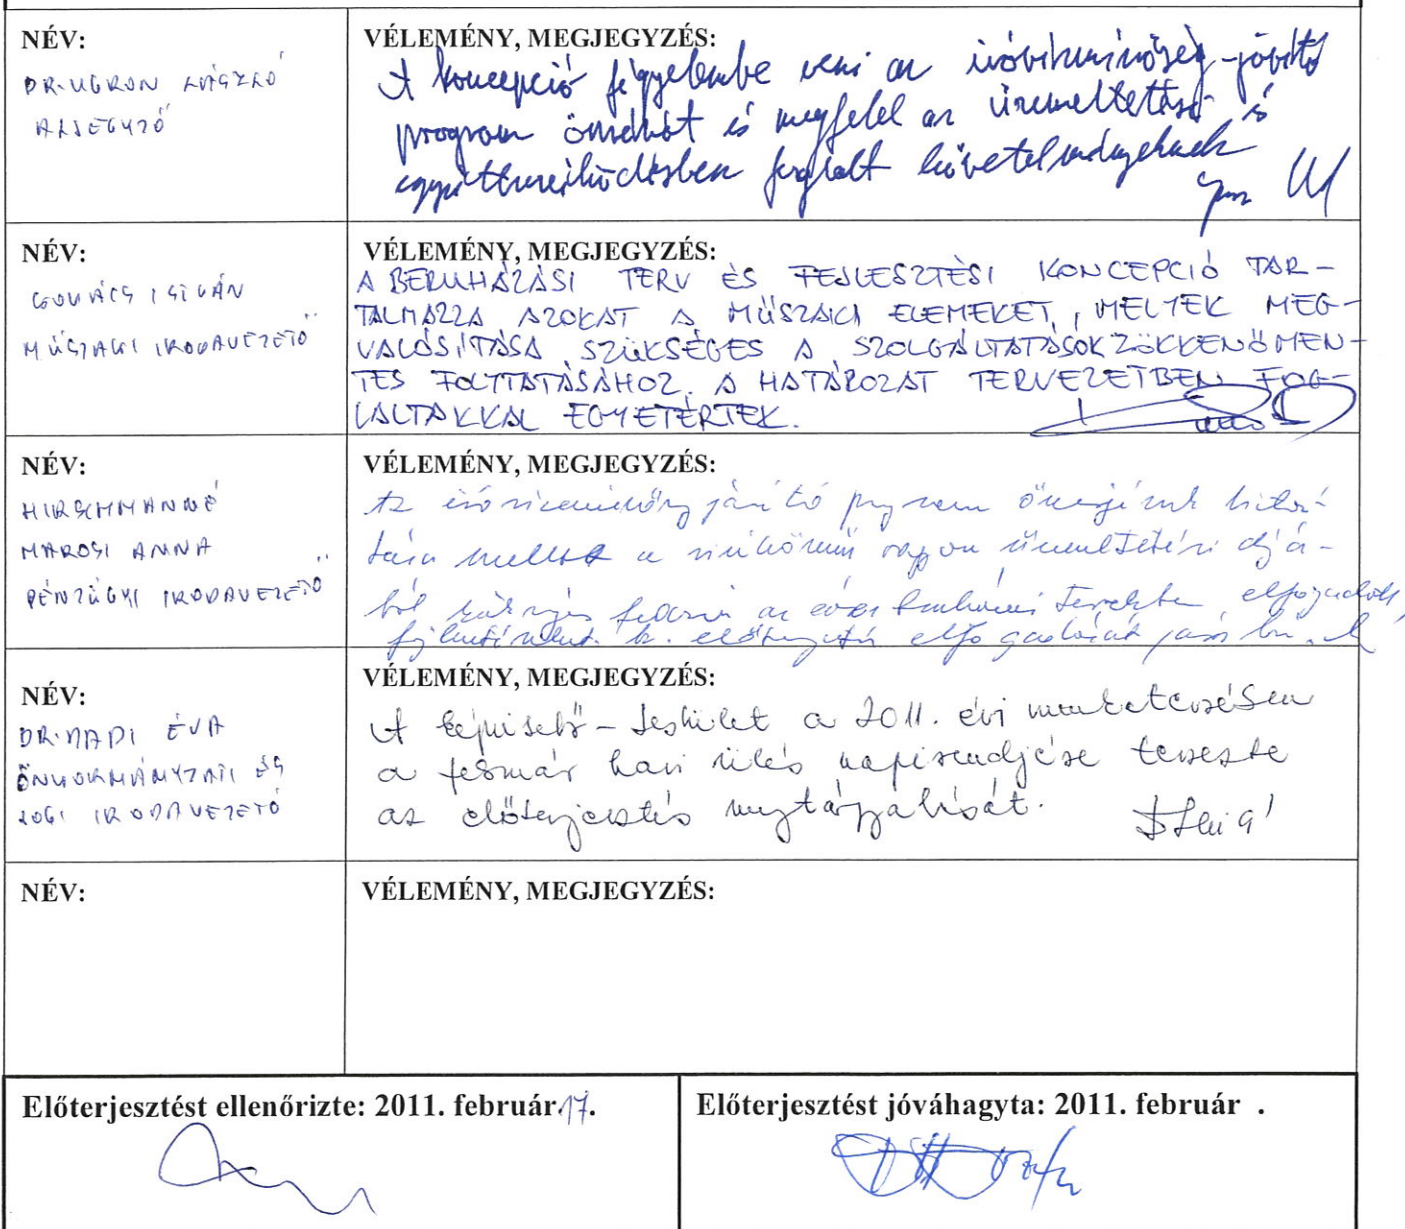 NÉV:
DR. UGRON LÁSZLÓ
ALJEGYZŐ
VÉLEMÉNY, MEGJEGYZÉS:
A koncepció figyelembe veszi az ivóvízminőség-javító
program önrészét és megfelel az üzemeltetési és
együttműködésben foglalt követelményeknek
NÉV:
KOVÁCS ISTVÁN
MŰSZAKI IRODAVEZETŐ
VÉLEMÉNY, MEGJEGYZÉS:
A BERUHÁZÁSI TERV ÉS FEJLESZTÉSI KONCEPCIÓ TAR-
TALMAZZA AZOKAT A MŰSZAKI ELEMEKET, MELYEK MEG-
VALÓSÍTÁSA SZÜKSÉGES A SZOLGÁLTATÁSOK ZÖKKENŐMEN-
TES FOLYTATÁSÁHOZ. A HATÁROZAT TERVEZETBEN FOG-
LALTAKKAL EGYETÉRTEK.
NÉV:
HIRSCHMANNÉ
MAROSI ANNA
PÉNZÜGYI IRODAVEZETŐ
VÉLEMÉNY, MEGJEGYZÉS:
Az ivóvízminőség javító program önerejének biztosí-
tása mellett a víziközmű vagyon üzemeltetési díjá-
ból
NÉV:
DR. NAPI ÉVA
ÖNKORMÁNYZATI ÉS
JOGI IRODAVEZETŐ
VÉLEMÉNY, MEGJEGYZÉS:
A képviselő-testület a 2011. évi munkatervében
a február havi ülés napirendjére tervezte
az előterjesztés megtárgyalását.
NÉV:
VÉLEMÉNY, MEGJEGYZÉS:
Előterjesztést ellenőrizte: 2011. február 17.
Előterjesztést jóváhagyta: 2011. február .